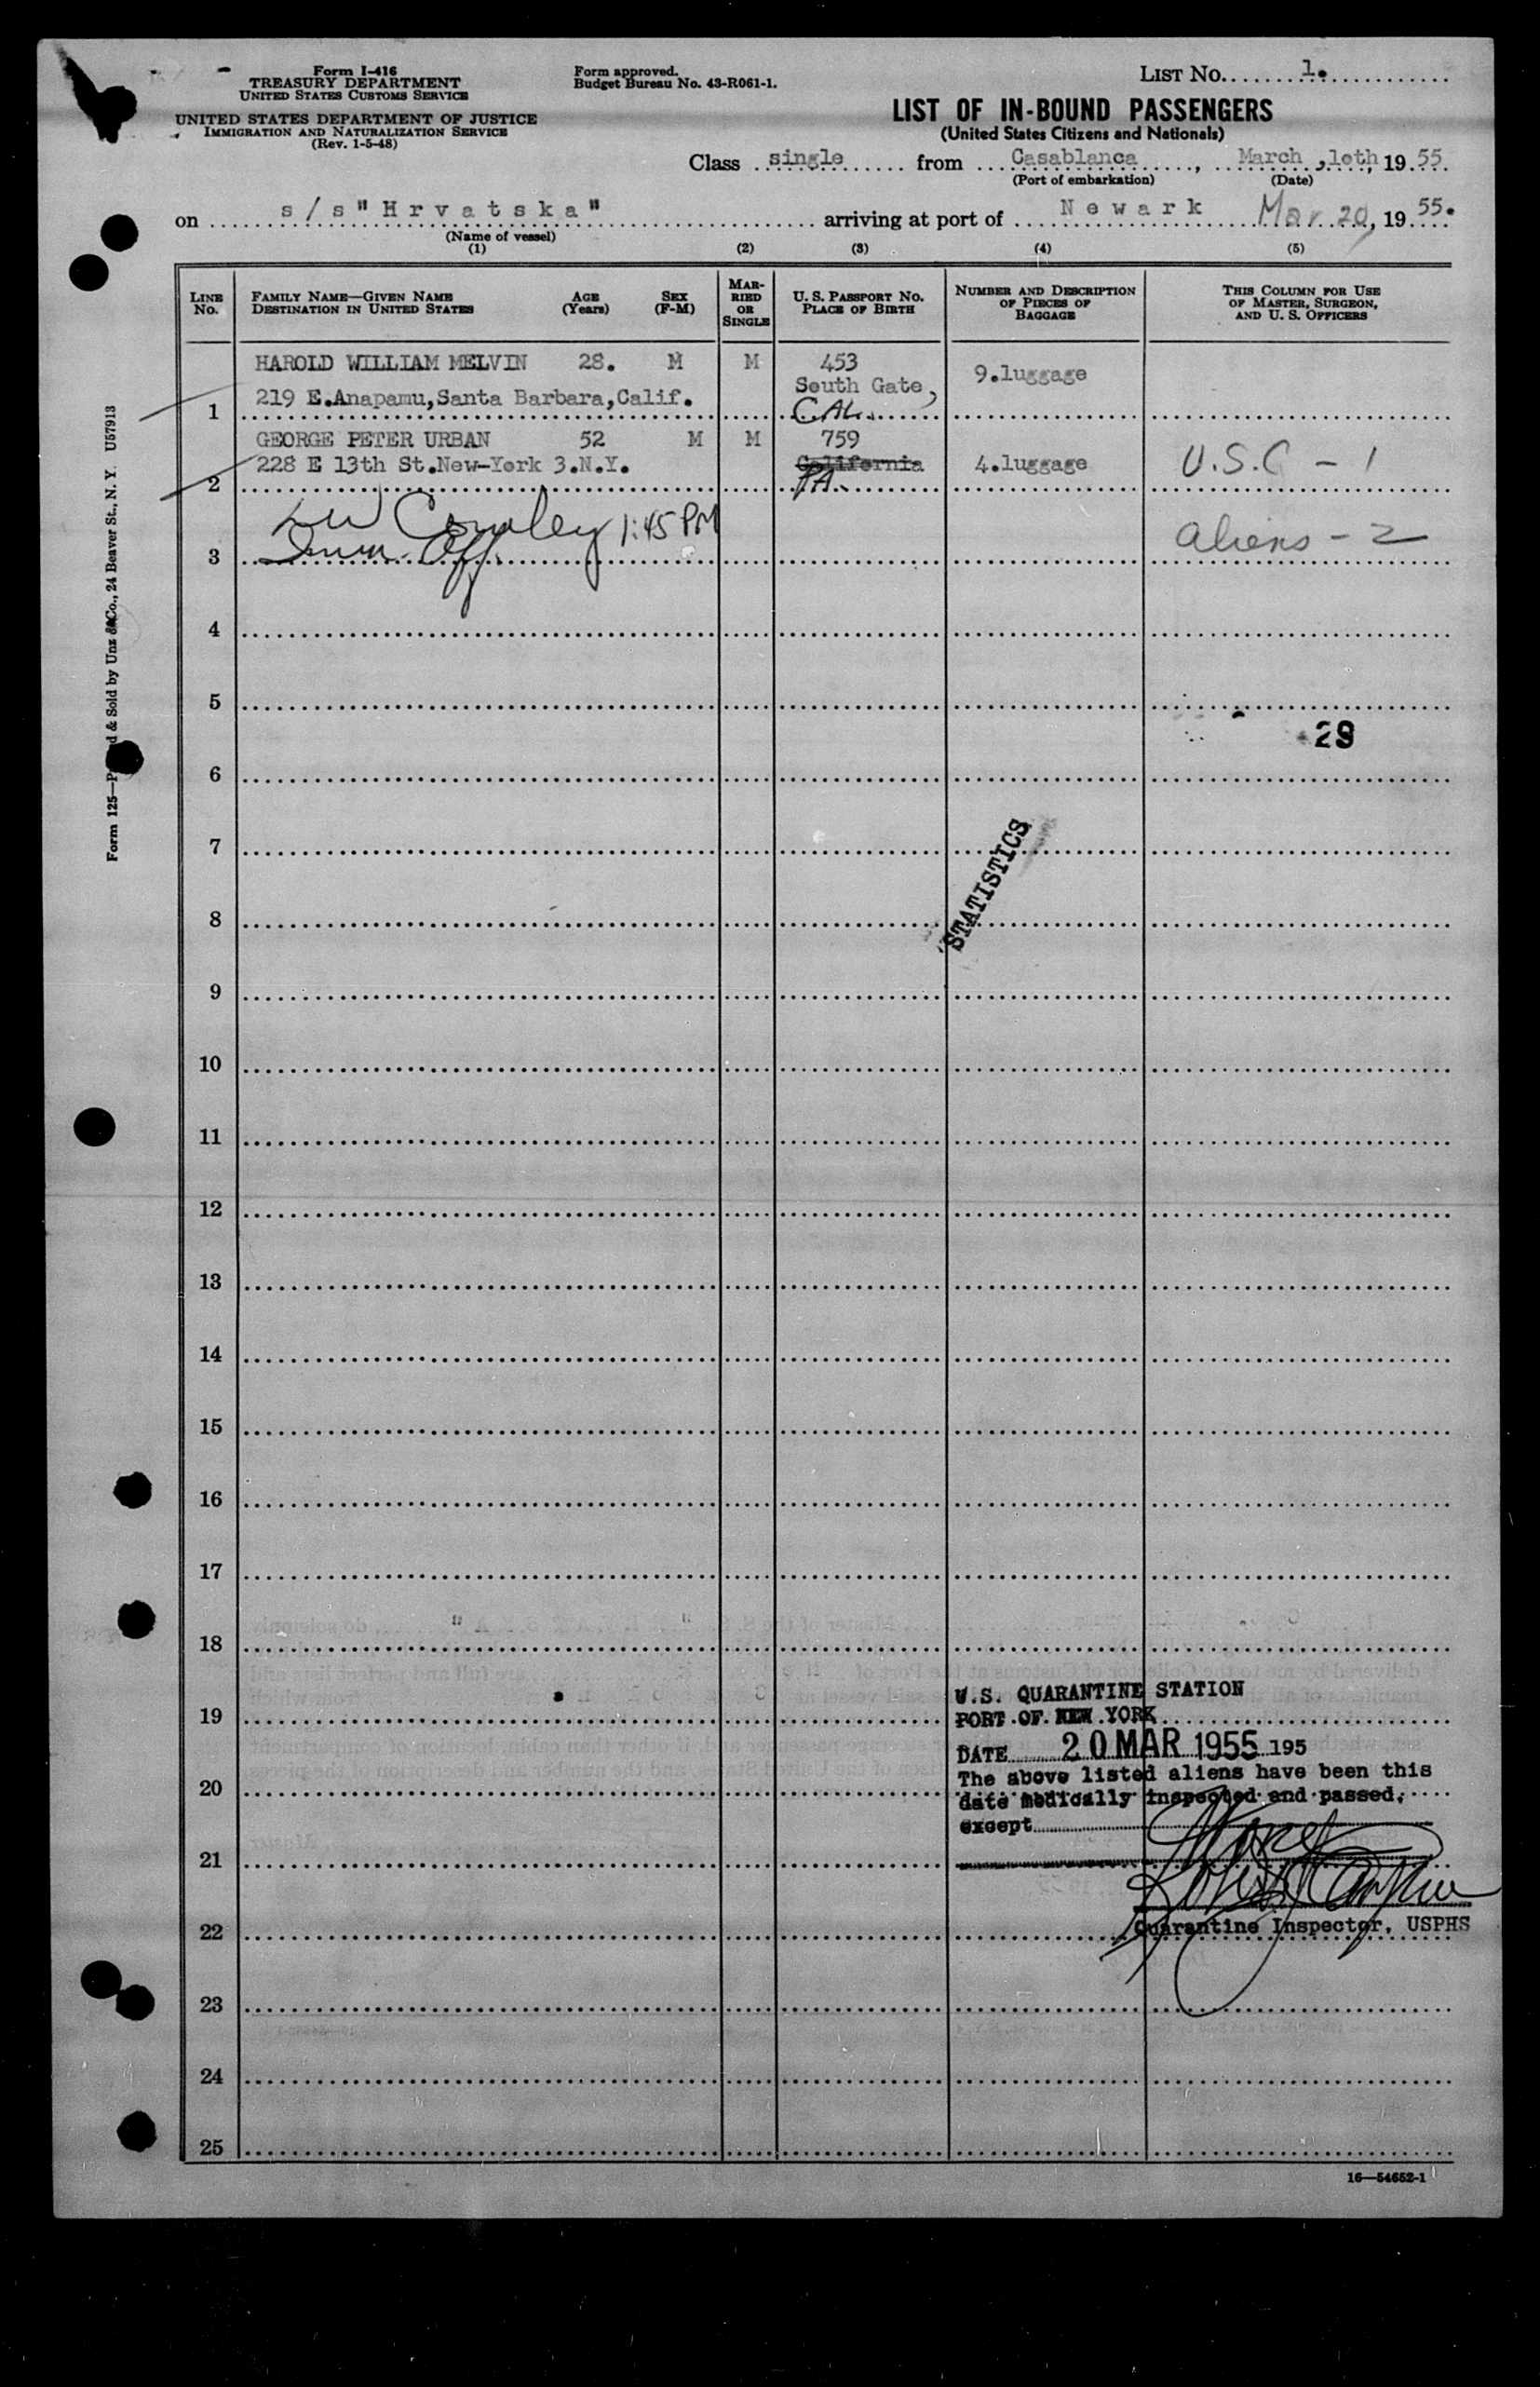 Form I-416
TREASURY DEPARTMENT
UNITED STATES CUSTOMS SERVICE
UNITED STATES DEPARTMENT OF JUSTICE
IMMIGRATION AND NATURALIZATION SERVICE
(Rev. 1-5-48)
Form approved.
Budget Bureau No. 43-R061-1.
LIST NO. 1.
LIST OF IN-BOUND PASSENGERS
(United States Citizens and Nationals)
Class single from Casablanca, March, 10th, 1955.
(Port of embarkation) (Date)
on s/s "Hrvatska" arriving at port of Newark Mar. 20, 1955.
(Name of vessel)
(1) (2) (3) (4) (5)
LINE NO.
FAMILY NAME—GIVEN NAME DESTINATION IN UNITED STATES
AGE (Years)
SEX (F-M)
MARRIED OR SINGLE
U. S. PASSPORT NO. PLACE OF BIRTH
NUMBER AND DESCRIPTION OF PIECES OF BAGGAGE
THIS COLUMN FOR USE OF MASTER, SURGEON, AND U. S. OFFICERS
HAROLD WILLIAM MELVIN 28. M M 453
South Gate, 9.luggage
1 219 E.Anapamu,Santa Barbara,Calif. CAL.
GEORGE PETER URBAN 52 M M 759
228 E 13th St.New-York 3.N.Y. California 4.luggage U.S.C - 1
2 PA.
1:45 PM
Imm. Off. aliens - 2
3
4
5
29
6
7
STATISTICS
8
9
10
11
12
13
14
15
16
17
18
U.S. QUARANTINE STATION
19 PORT OF NEW YORK
DATE 20 MAR 1955 195
The above listed aliens have been this
20 date medically inspected and passed,
except
21
22 Quarantine Inspector, USPHS
23
24
25
16—54652-1
Form 125— & Sold by Unz & Co., 24 Beaver St., N. Y. U57913